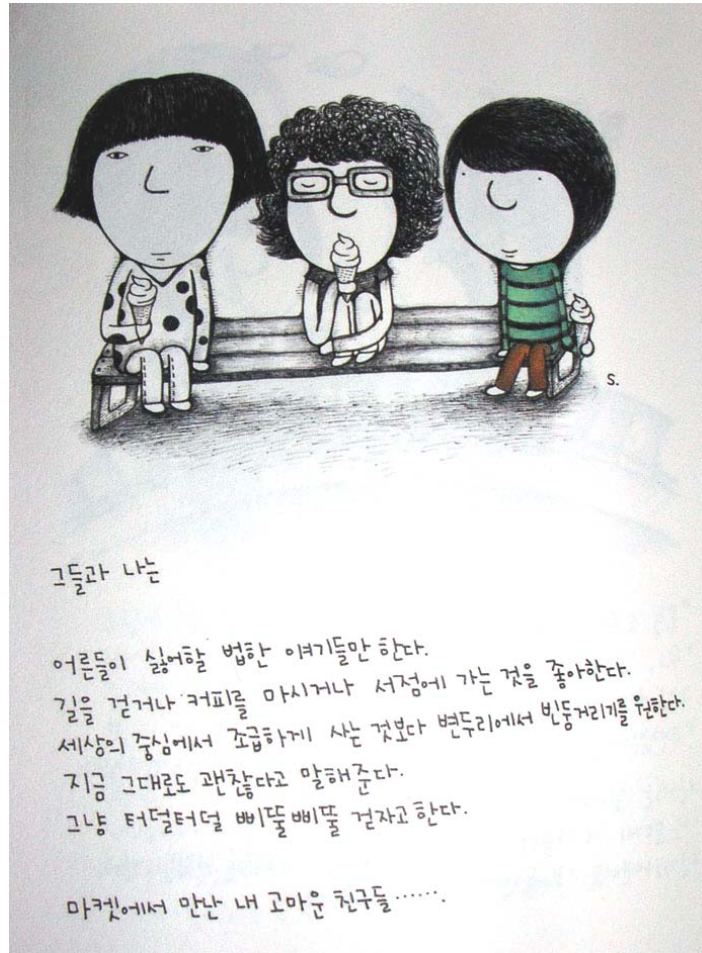 S.
그들과 나는
어른들이 싫어할 법한 이야기들만 한다.
길을 걷거나 커피를 마시거나 서점에 가는 것을 좋아한다.
세상의 중심에서 조급하게 사는 것보다 변두리에서 빈둥거리기를 원한다.
지금 그대로도 괜찮다고 말해준다.
그냥 터덜터덜 삐뚤삐뚤 걷자고한다.
마켓에서 만난 내 고마운 친구들…….